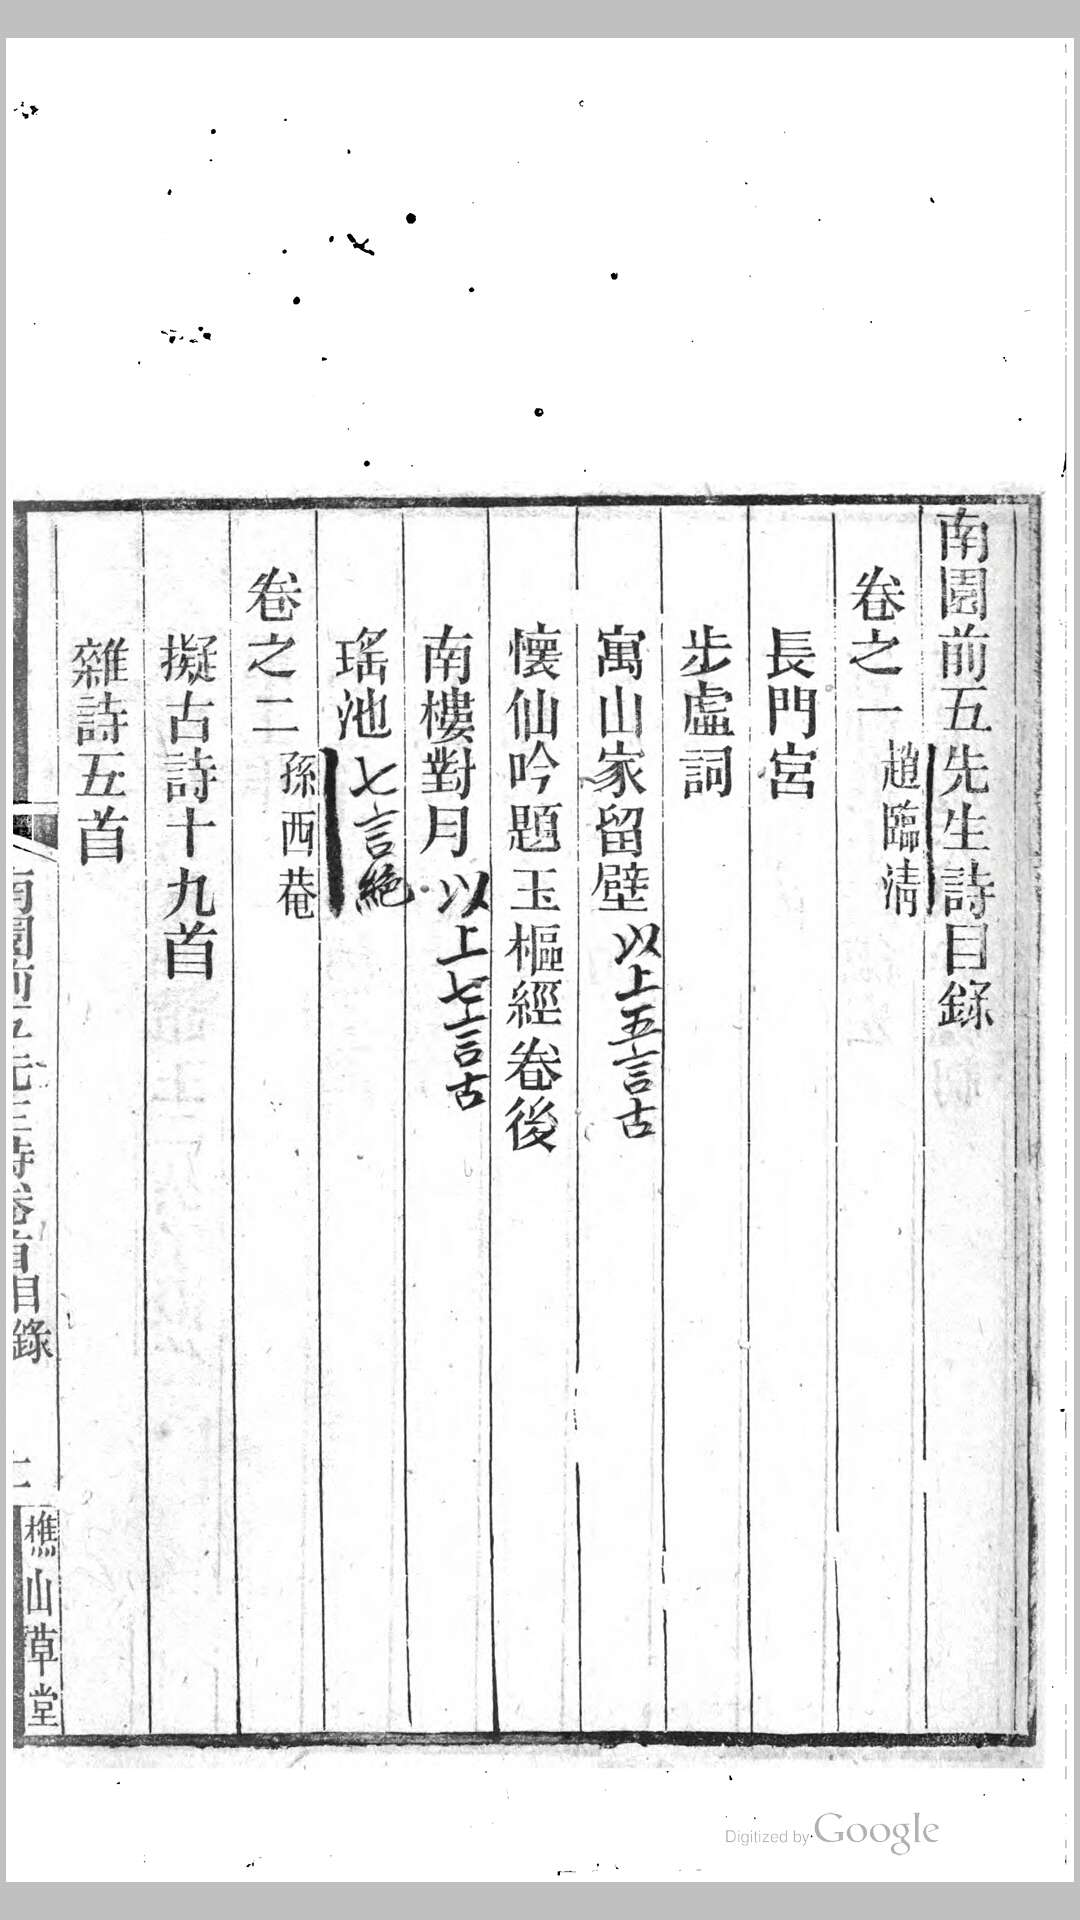 南園前五先生詩目錄
卷之一 趙臨清
長門宮
步虛詞
寓山家留壁 以上五言古
懷仙吟題玉樞經卷後
南樓對月 以上七言古
瑤池 七言絕
卷之二 孫西菴
擬古詩十九首
雜詩五首
南園前五先生詩卷首目錄
一
樵山草堂
Digitized by Google